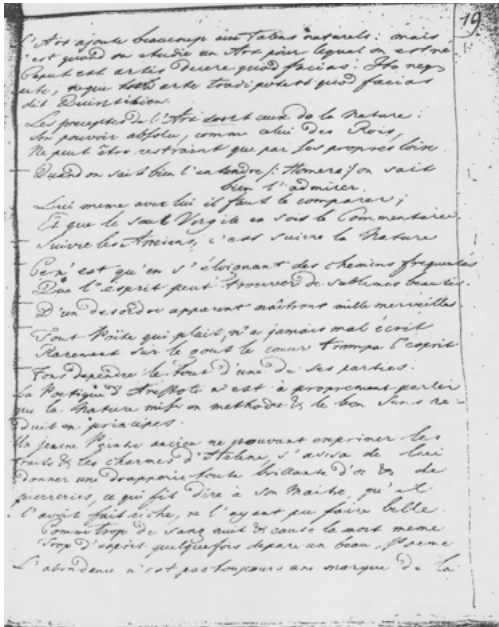 19
L'Art ajoute beaucoup aux talens naturels: mais
c'est quand on etudie un Art pour lequel on est né
Caput est artis decere quod facias: Ita neq
arte, neque arte tradi potest quod facias
dit Quintilien.
Les preceptes de l'Art sont ceux de la Nature:
Son pouvoir absolu, comme celui des Rois,
Ne peut être restraint que par Ses propres loix.
Quand on sait bien l'entendre /: Homere :/ on sait
bien l'admirer.
Lui meme avec lui il faut le comparer;
Et que le seul Vergile en soit le Commentaire.
Suivre les Anciens, c'est suivre la Nature
Ce n'est qu'en s'éloignant des chemins frequentés
Que l'esprit peut trouver de sublimes beautés.
D'un desordre apparent naîtront mille merveilles.
Tout Poëte qui plait, n'a jamais mal écrit
Rarement sur le gout le coeur trompa l'esprit
Fons dependre le tout d'une de ses parties.
La Poetique d'Aristote n'est à proprement parler
que la Nature mise en methode & le bon Sens re-
duit en principes.
Un jeune Peintre ancien ne pouvant exprimer les
traits & les charmes d'Helene, s'avisa de lui
donner une drapperie toute brillante d'or & de
pierreries, ce qui fit dire à son Maitre, qu'il
l'avoit fait riche, ne l'ayant pu faire belle.
Comme trop de sang nuit & cause la mort meme
Trop d'esprit quelquefois depare un beau Poeme
L'abondance n'est pas toujours une marque de la